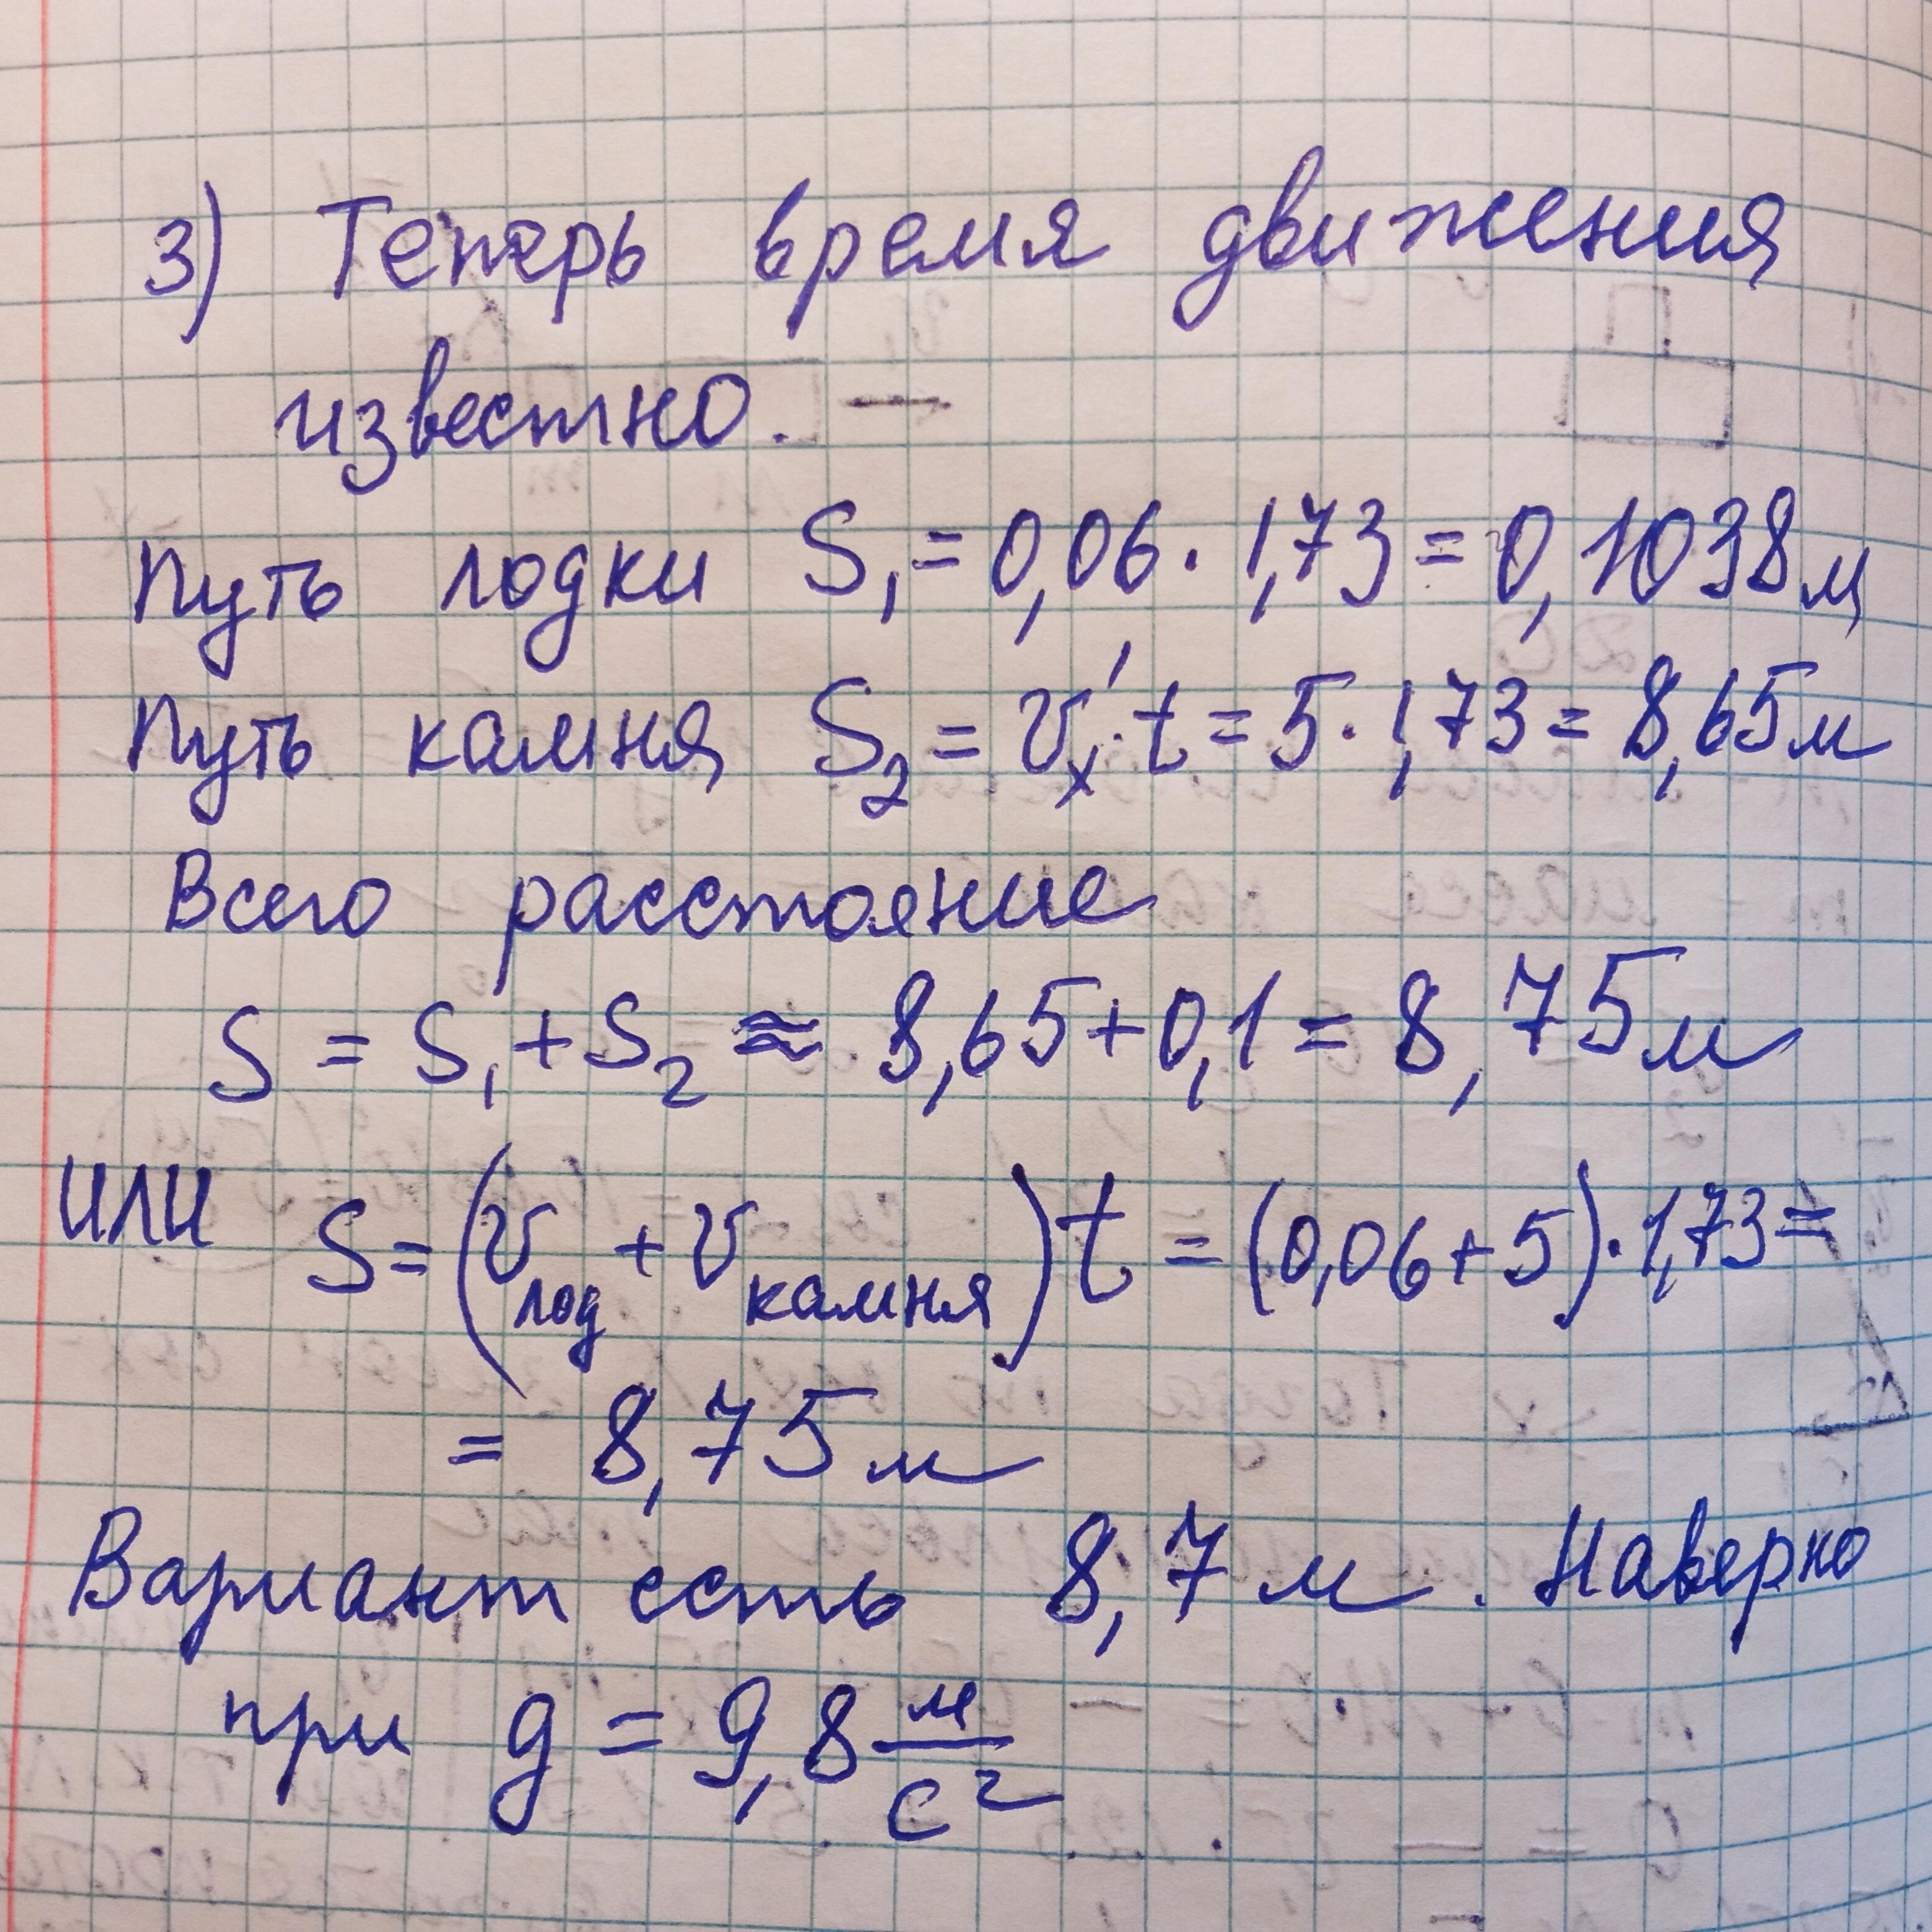 3) Теперь время движения
известно.
Путь лодки S₁ = 0,06 · 1,73 = 0,1038 м
Путь камня S₂ = v'ₓ · t = 5 · 1,73 = 8,65 м
Всего расстояние
S = S₁ + S₂ ≈ 8,65 + 0,1 = 8,75 м
или S = (v лод + v камня) t = (0,06 + 5) · 1,73 =
= 8,75 м
Вариант есть 8,7 м. Наверно
при g = 9,8 м/с²